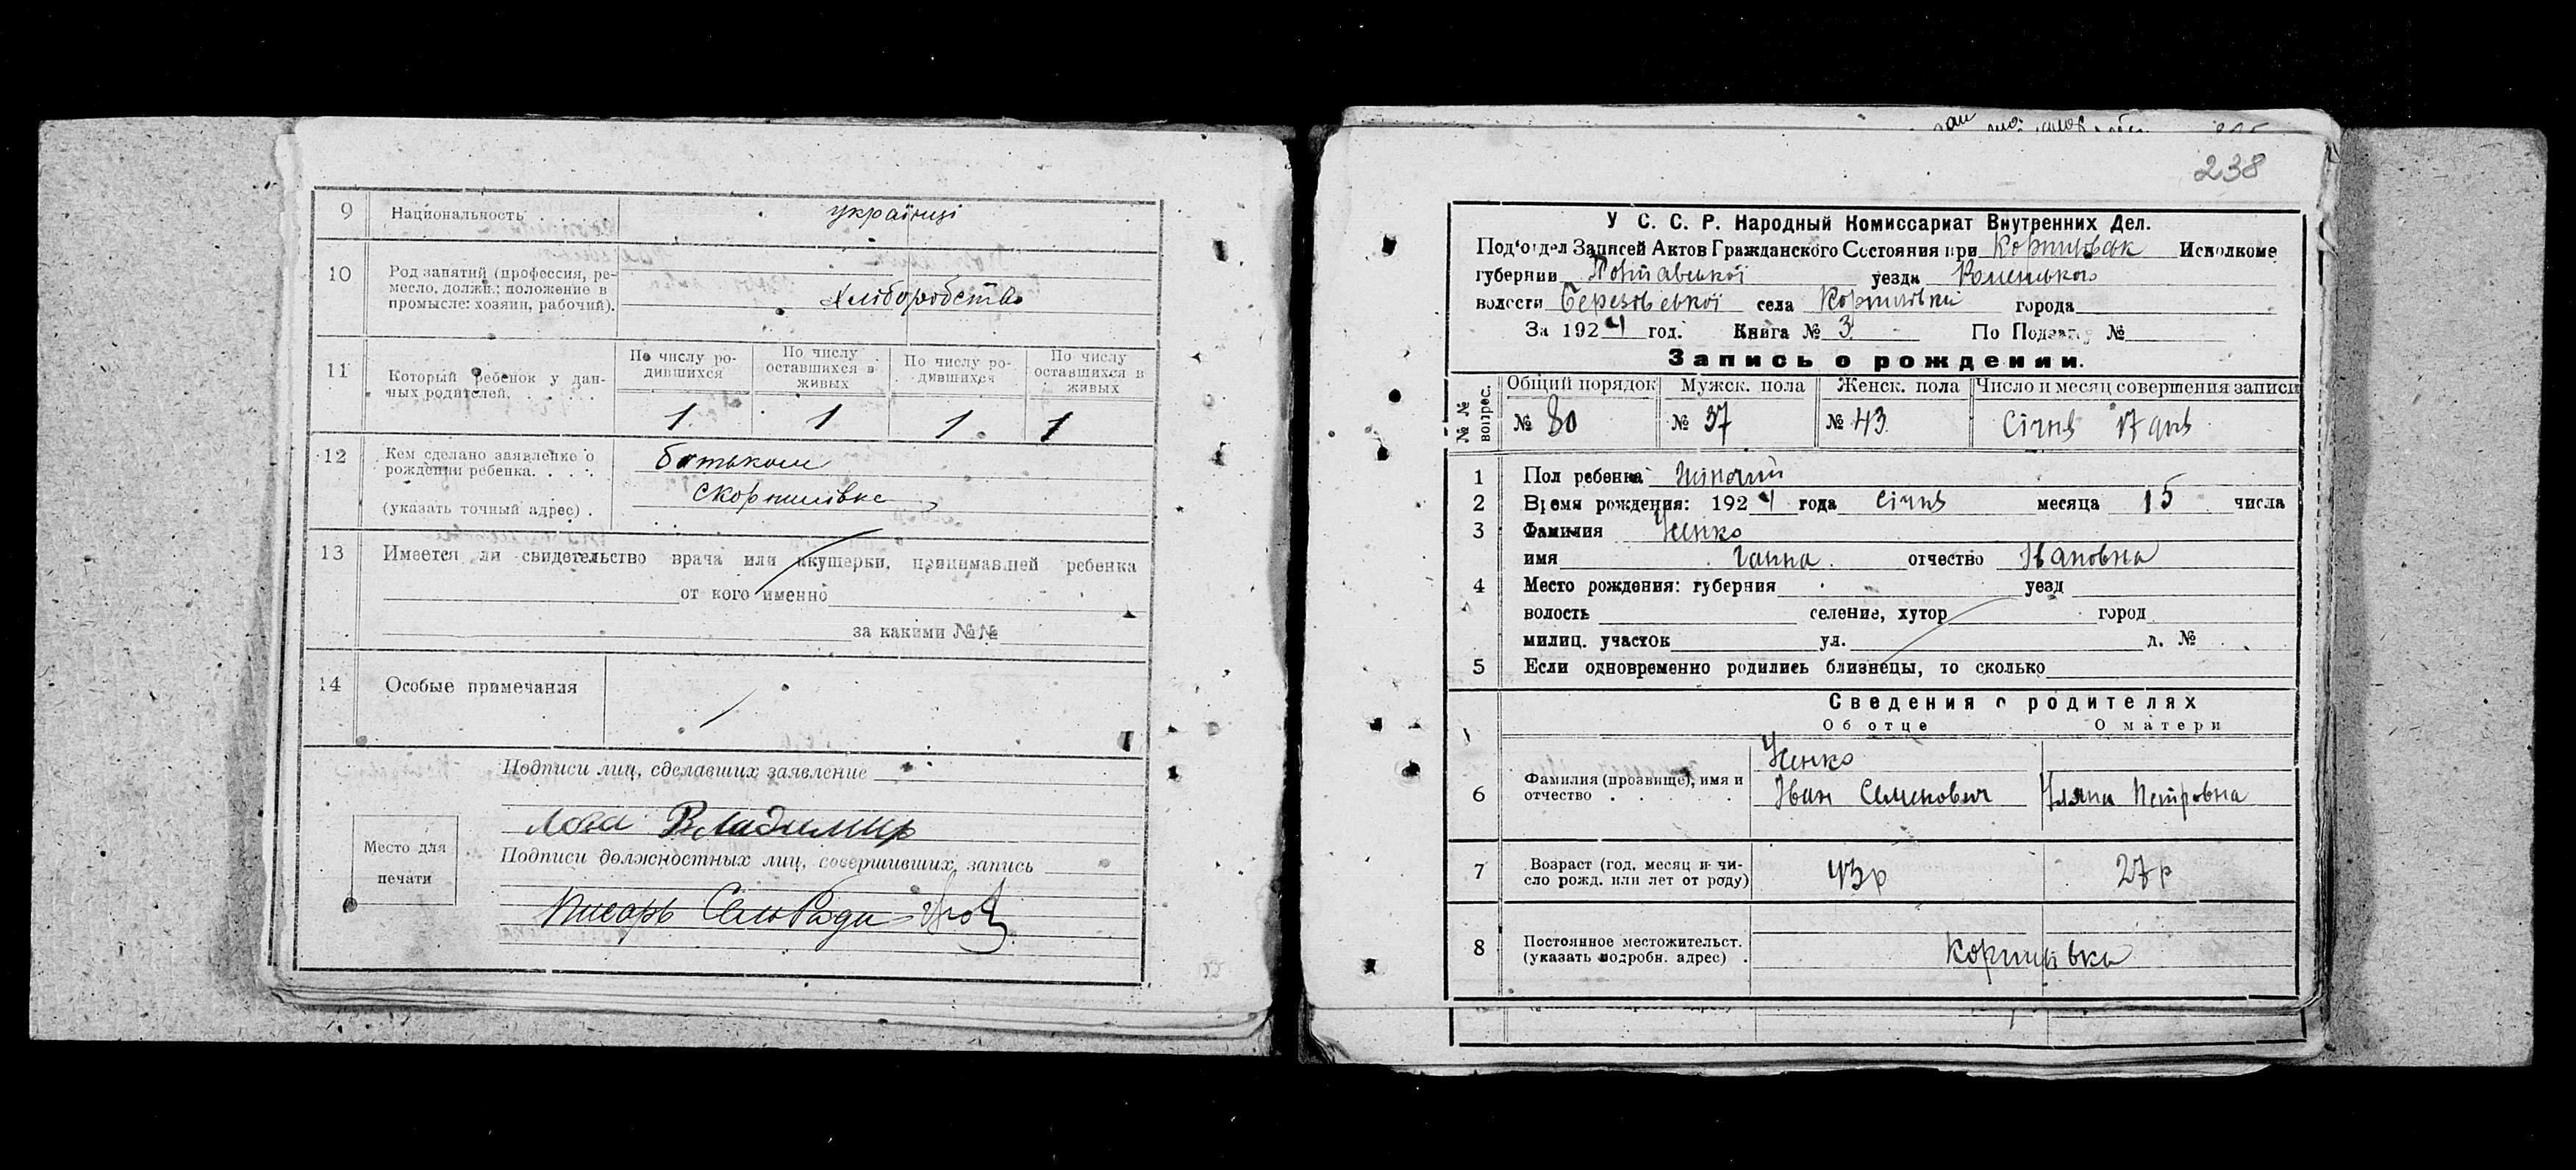 9 Национальность українці
10 Род занятий (профессия, ре-
месло, должн.; положение в
промысле: хозяин, рабочий). Хліборобство
11 Который ребенок у дан-
ных родителей.
По числу ро-
дившихся
По числу
оставшихся в
живых
По числу ро-
дившихся
По числу
оставшихся в
живых
1 1 1 1
12 Кем сделано заявление о
рождении ребенка. батьком
(указать точный адрес)
13 Имеется ли свидетельство врача или акушерки, принимавшей ребенка
от кого именно
за какими №№
14 Особые примечания
Подписи лиц, сделавших заявление
Лоза Владимир
Место для
печати
Подписи должностных лиц, совершивших запись
Писарь СельРади
238
У С. С. Р. Народный Комиссариат Внутренних Дел.
Под'отдел Записей Актов Гражданского Состояния при Исполкоме
губернии Полтавської уезда
волости Березівської села города
За 1924 год. Книга № 3 По Подзагу №
Запись о рождении.
№ № вопрос.
Общий порядок Мужск. пола Женск. пола Число и месяц совершения записи
№ 80 № 37 № 43 Січня 17 дня
1 Пол ребенка жіночий
2 Время рождения: 1924 года січня месяца 15 числа
3 Фамилия Усенко
имя Ганна отчество Івановна
4 Место рождения: губерния уезд
волость селение, хутор город
милиц. участок ул. д. №
5 Если одновременно родились близнецы, то сколько
Сведения о родителях
Об отце О матери
6 Фамилия (прозвище), имя и
отчество
Усенко
Іван Семенович Уляна Петровна
7 Возраст (год, месяц и чи-
сло рожд. или лет от роду) 43р 27р
8 Постоянное местожительст.
(указать подробн. адрес)